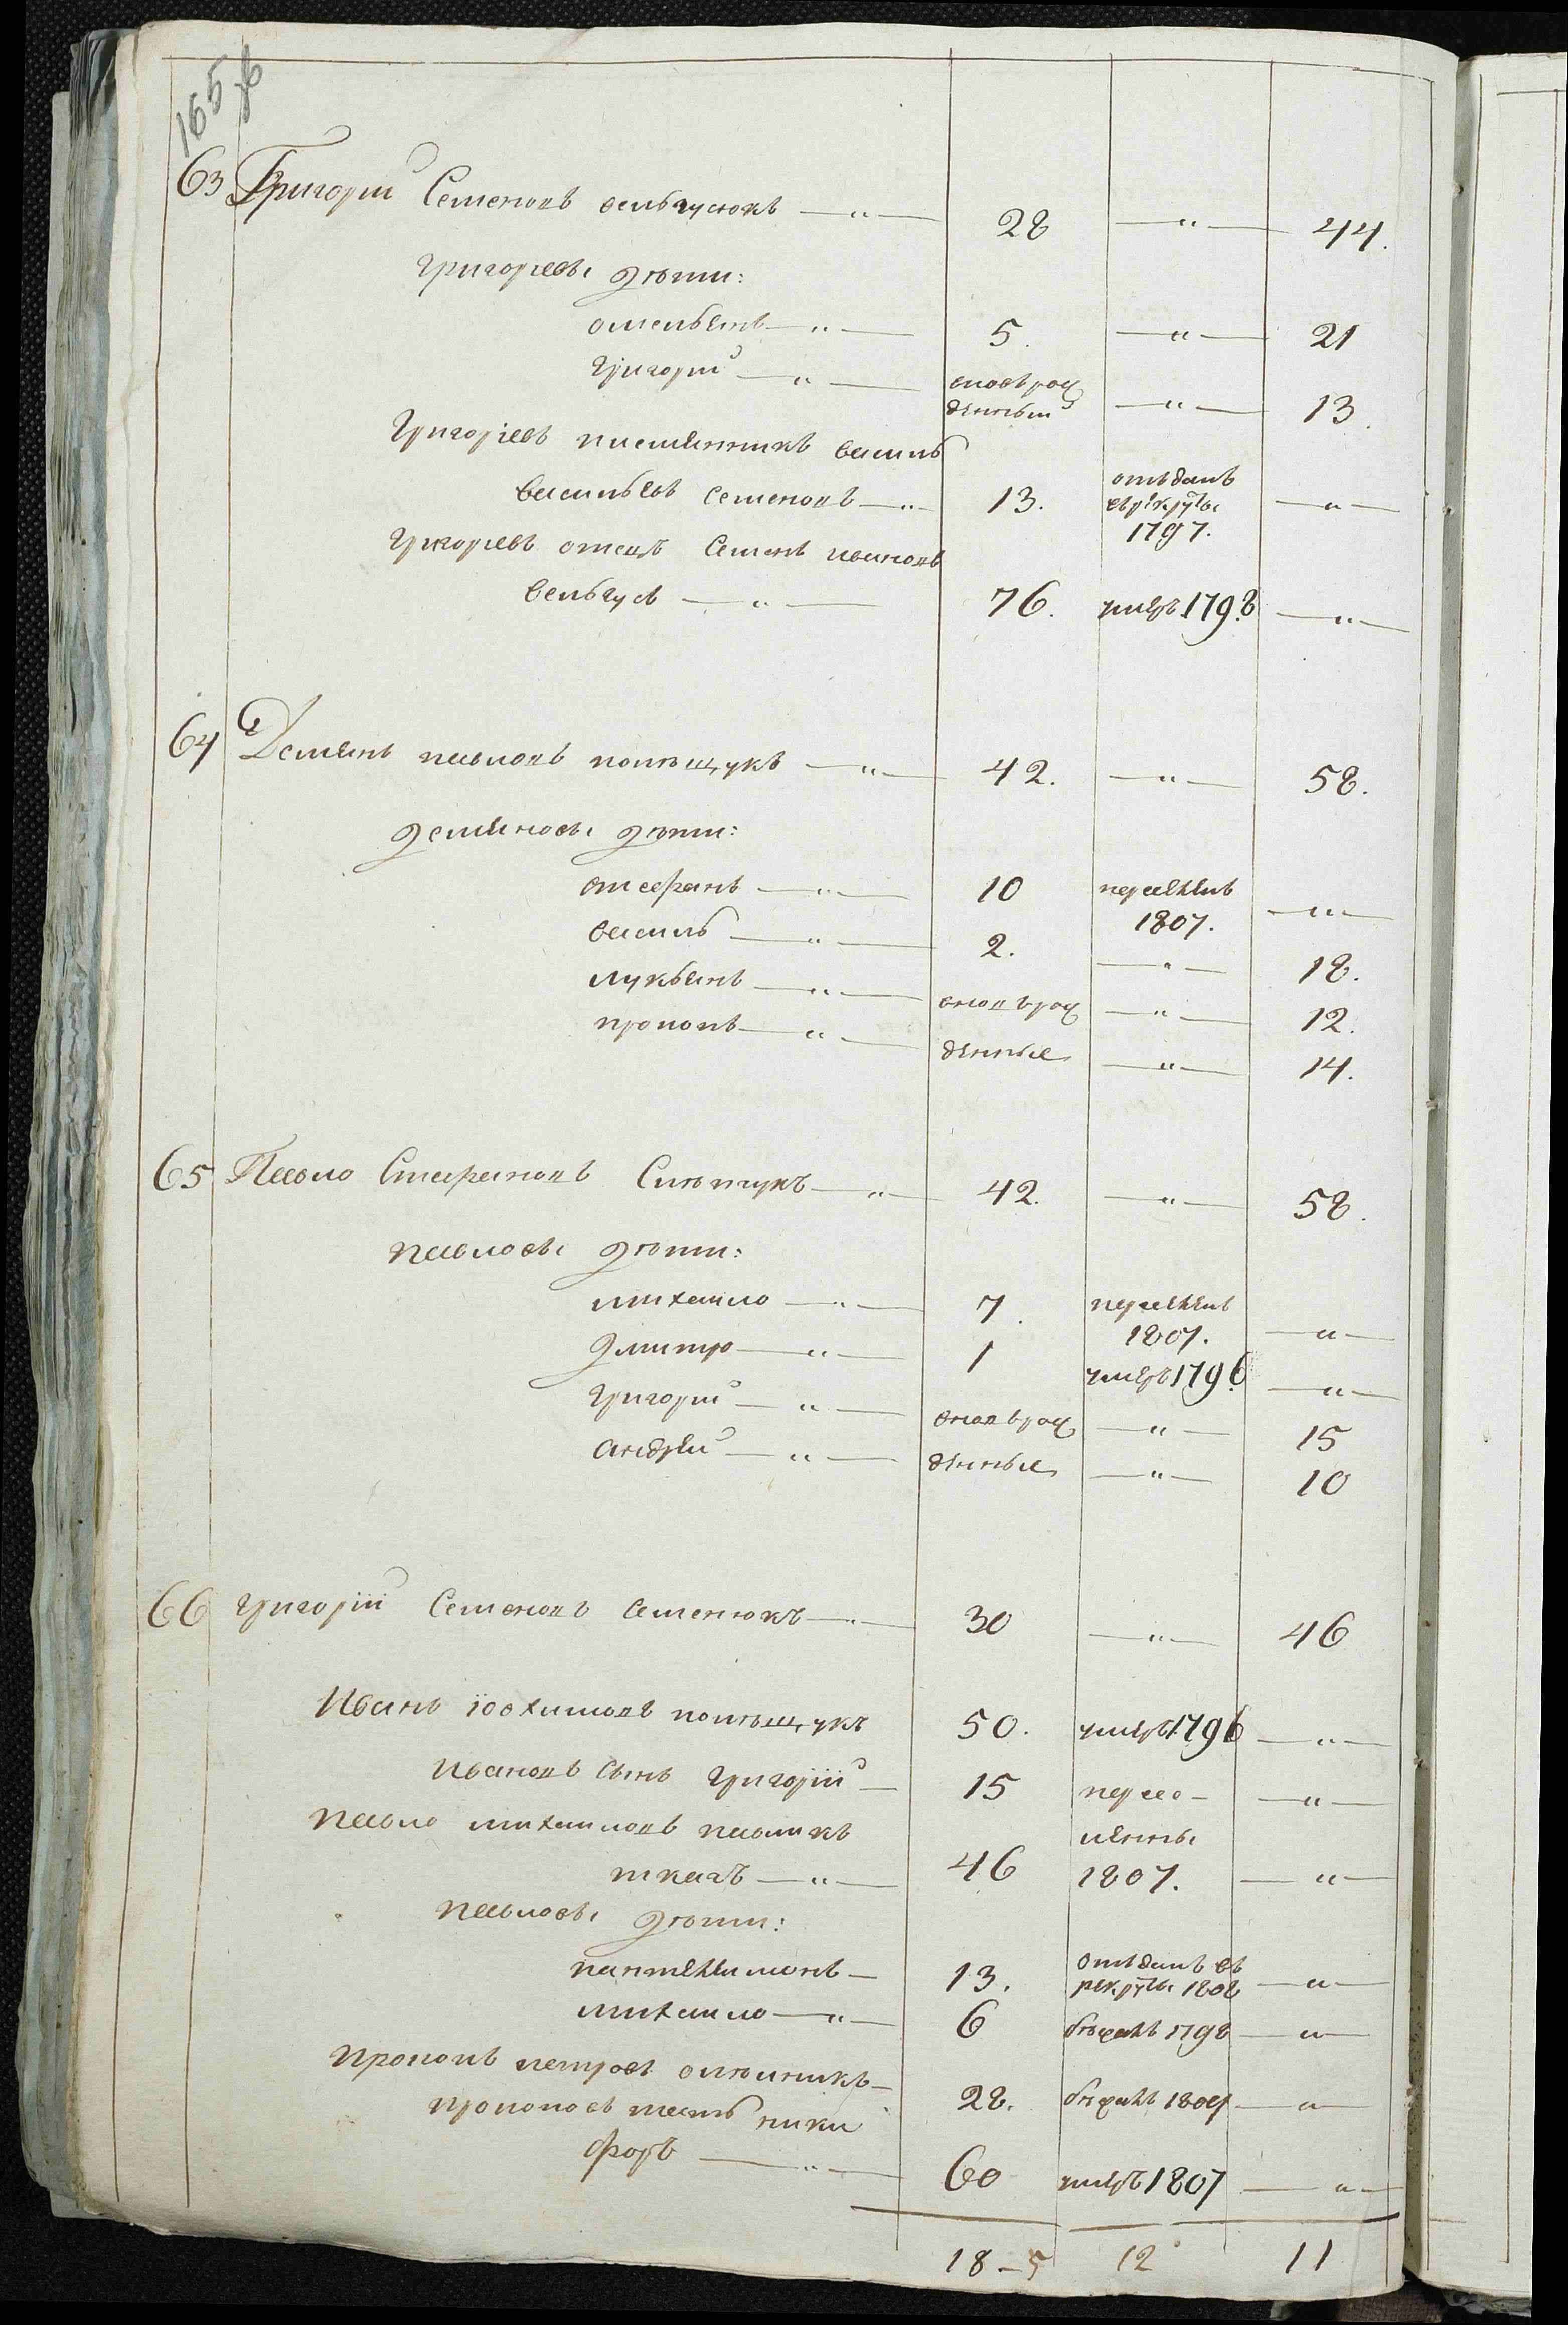 165
63 Григорій Семеновъ велъгусюкъ — " — 28 — " — 44.
Григорьевы дѣти:
омельянъ — " — 5. — " — 21
Григорій — " — вновь рож
денный — " — 13.
Григорьевъ племянникъ василь
васильевъ семеновъ — " — 13. отъданъ
в рекруты — " —
1797.
Григорьевъ отецъ Семенъ ивановъ
вельгусъ — " — 76. умеръ 1798 — " —
64 Демянъ павловъ полѣщукъ — " — 42. — " — 58.
демяновы дѣти:
стефанъ — " — 10 переехалъ
1807. — " —
василь — " — 2. — " — 18.
лукьянъ — " — вновь рож — " — 12.
прокопъ — " — денные — " — 14.
65 Павло Стефановъ Слѣпчукъ — " — 42. — " — 58.
павловы дѣти:
михайло — " — 7. переехалъ
1807. — " —
дмитро — " — 1 умеръ 1796 — " —
Григорій — " — вновь рож — " — 15
андрей — " — денные — " — 10
66 григорій Семеновъ семенюкъ — " — 30 — " — 46
Иванъ іовхимовъ полѣщукъ 50. умеръ 1796 — " —
Ивановъ сынъ григорій — 15 пересе- — " —
Павло михайловъ павликъ ленны
ткачъ — " — 46 1807. — " —
павловы дѣти:
пантелеимонъ — 13. отъданъ въ
рекруты 1808 — " —
михайло — " — 6 бѣжалъ 1798 — " —
Прокопъ петровъ олѣйникъ — 28. бѣжалъ 1804 — " —
прокоповъ тесть ники
форъ — " — 60 умеръ 1807 — " —
18 – 5 12 11